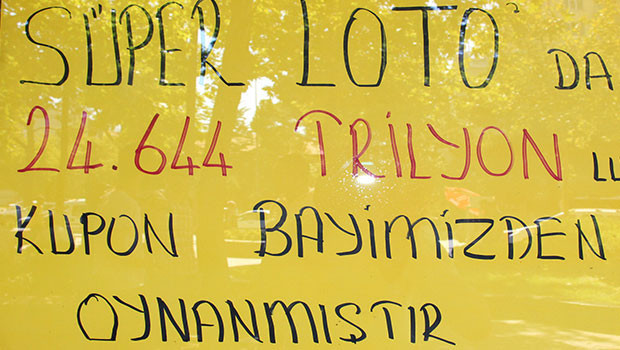 SÜPER LOTO' DA
24.644 TRİLYON LU
KUPON BAYİMİZDEN
OYNANMIŞTIR